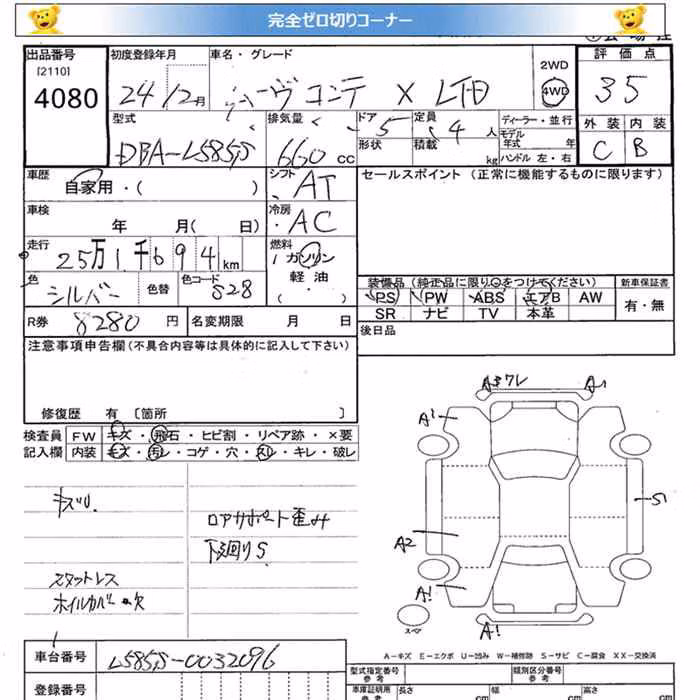 完全ゼロ切りコーナー
出品番号 初度登録年月 車名・グレード 評価点
[2110]
4080 24 12月 ムーヴ コンテ X LTD 2WD 4WD 35
型式 排気量 ドア 5 定員 4 人 ディーラー・並行 外装 内装
DBA-L585S 660 CC 形状 積載 kg モデル年式 年 C B
ハンドル 左・右
車歴 シフト AT セールスポイント (正常に機能するものに限ります)
自家用・( )
車検 冷房 AC
年 月( 日)
走行 燃料
25万1千694km ガソリン
軽油
・( )
色 シルバー 色替 色コード S28
装備品(純正品に限り○をつけてください) 新車保証書
PS PW ABS エアB AW 有・無
SR ナビ TV 本革
R券 8280 円 名変期限 月 日 後日品
注意事項申告欄(不具合内容等は具体的に記入して下さい)
修復歴 有 〔箇所 〕
検査員 FW キズ・飛石・ヒビ割・リペア跡・×要
記入欄 内装 キズ・汚レ・コゲ・穴・スレ・キレ・破レ
キズU.
ロアサポート歪み
下廻りS
スタットレス
ホイルカバー欠
A3ワレ A1
A1
S1
A2
A1
スペア
A1
A-キズ E-エクボ U-凹み W-補修跡 S-サビ C-腐食 XX-交換済
車台番号 L585S-0032096
型式指定番号 参考 類別区分番号 参考
登録番号 車庫証明用 参考 長さ cm 幅 cm 高さ cm